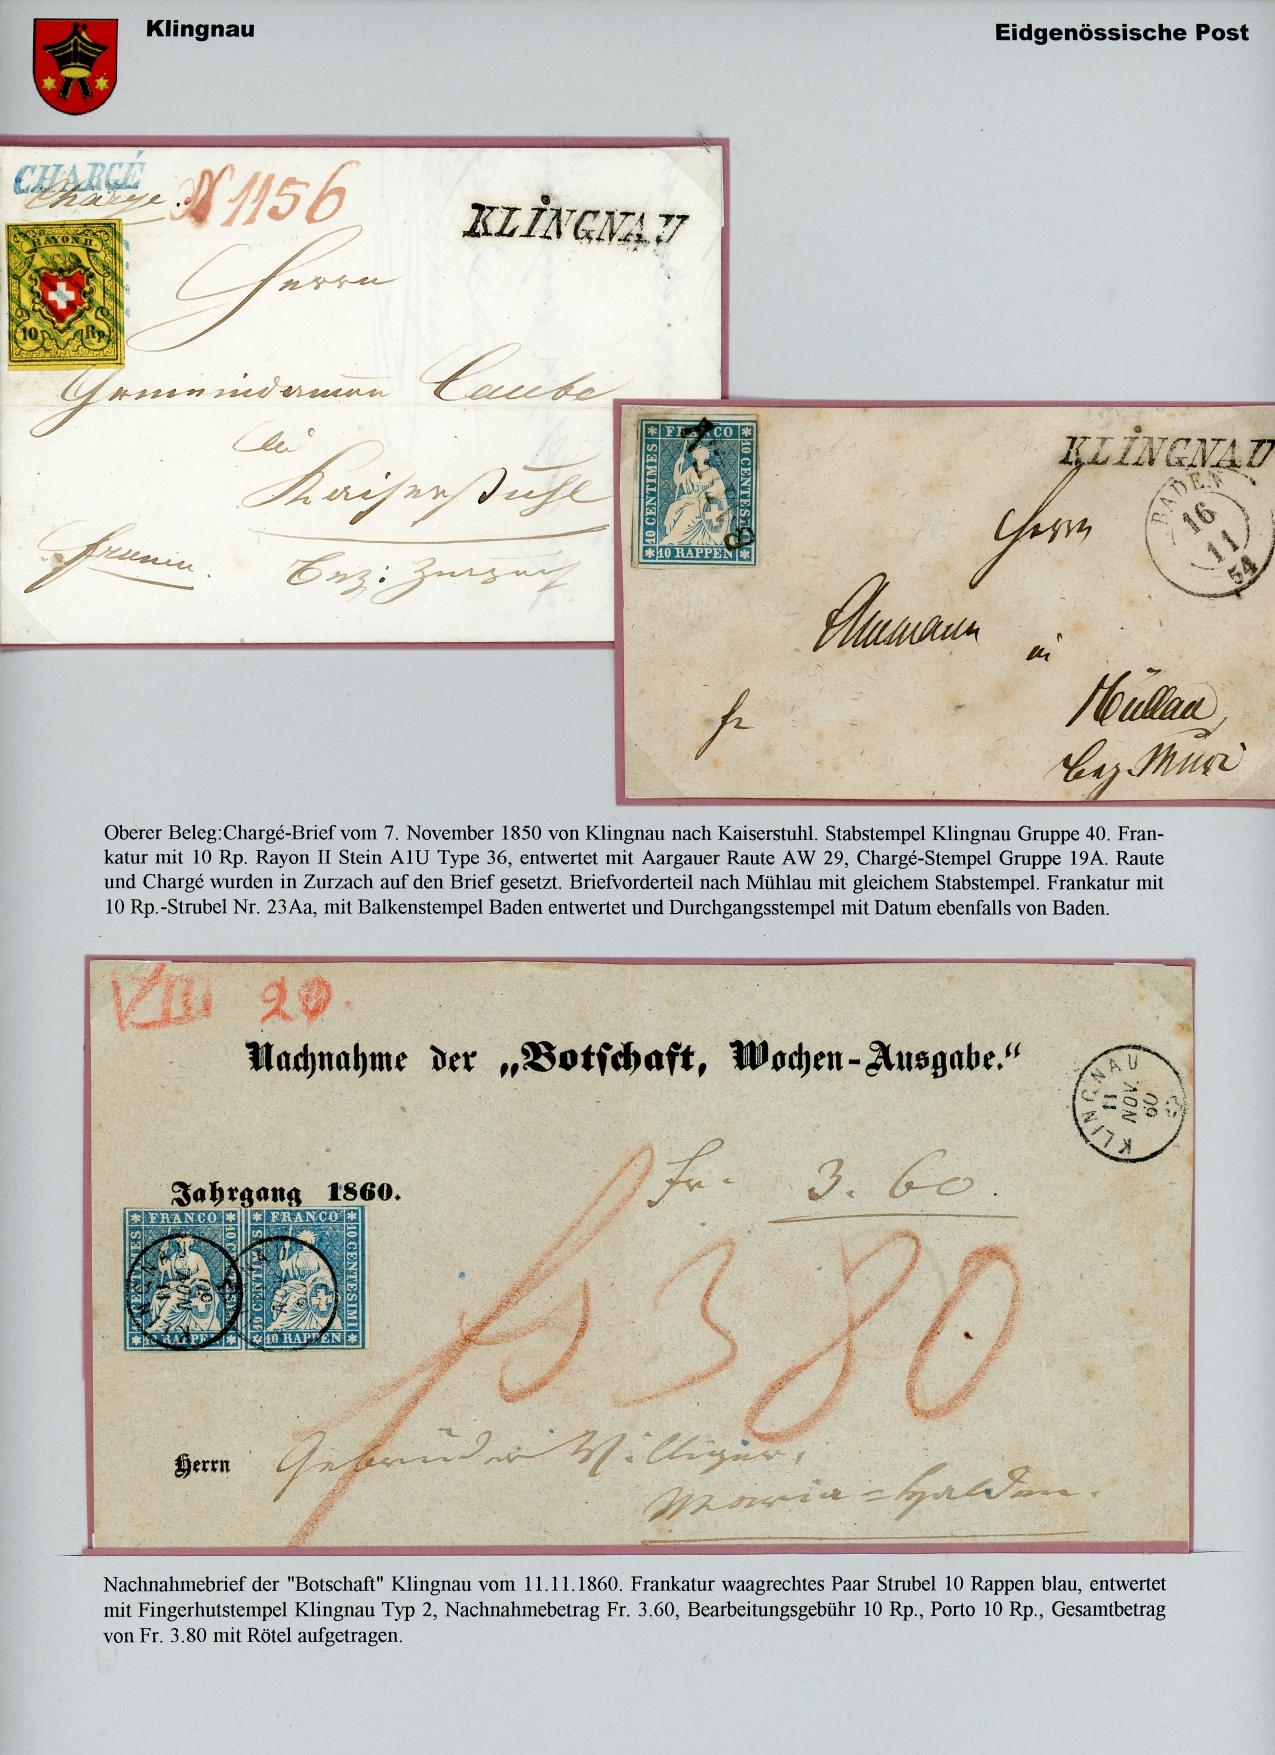 Klingnau
Eidgenössische Post
CHARGÉ
Chargé.
N 1156
KLINGNAU
RAYON II.
10 Rp.
Herrn
Gemeindamman Laube
in
Kaiserstuhl
franco.
Bez: Zurzach
FRANCO
10 CENTIMES
10 CENTESIMI
10 RAPPEN
KLINGNAU
BADEN
16
11
54
Herrn
Ammann
in
Müllau,
Bez. Muri
fr
Oberer Beleg:Chargé-Brief vom 7. November 1850 von Klingnau nach Kaiserstuhl. Stabstempel Klingnau Gruppe 40. Fran-
katur mit 10 Rp. Rayon II Stein A1U Type 36, entwertet mit Aargauer Raute AW 29, Chargé-Stempel Gruppe 19A. Raute
und Chargé wurden in Zurzach auf den Brief gesetzt. Briefvorderteil nach Mühlau mit gleichem Stabstempel. Frankatur mit
10 Rp.-Strubel Nr. 23Aa, mit Balkenstempel Baden entwertet und Durchgangsstempel mit Datum ebenfalls von Baden.
VIII 20.
Nachnahme der „Botschaft, Wochen-Ausgabe.“
KLINGNAU
11
NOV
60
Fr. 3. 60.
Jahrgang 1860.
FRANCO
10 CENTIMES
10 CENTESIMI
10 RAPPEN
FRANCO
10 CENTIMES
10 CENTESIMI
10 RAPPEN
KLINGNAU
11
NOV
60
fs 3 80
Herrn Gebrüder Villiger,
Maria=halden.
Nachnahmebrief der "Botschaft" Klingnau vom 11.11.1860. Frankatur waagrechtes Paar Strubel 10 Rappen blau, entwertet
mit Fingerhutstempel Klingnau Typ 2, Nachnahmebetrag Fr. 3.60, Bearbeitungsgebühr 10 Rp., Porto 10 Rp., Gesamtbetrag
von Fr. 3.80 mit Rötel aufgetragen.